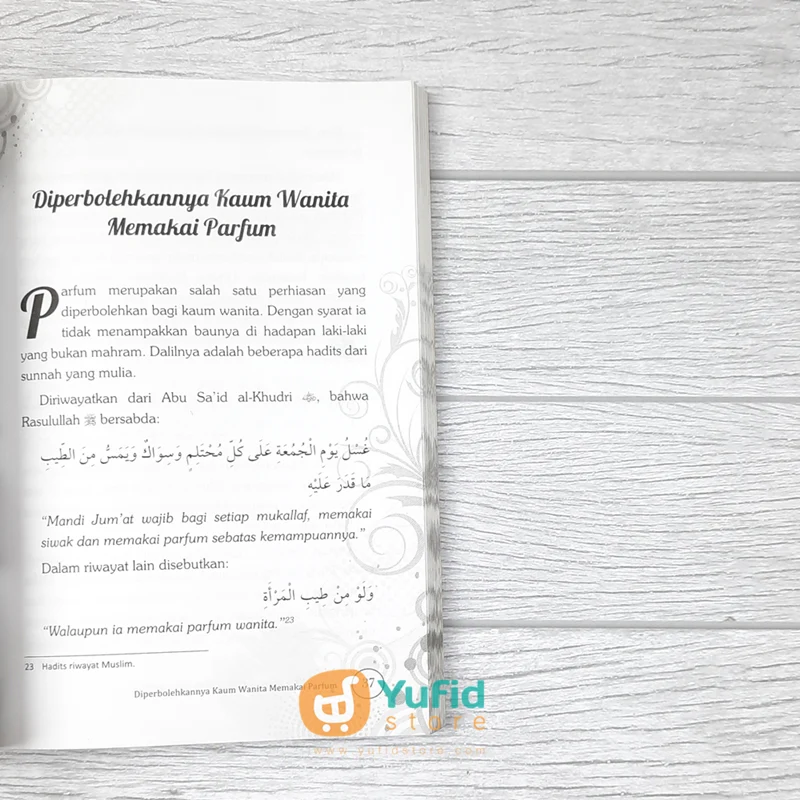 Diperbolehkannya Kaum Wanita
Memakai Parfum
Parfum merupakan salah satu perhiasan yang
diperbolehkan bagi kaum wanita. Dengan syarat ia
tidak menampakkan baunya di hadapan laki-laki
yang bukan mahram. Dalilnya adalah beberapa hadits dari
sunnah yang mulia.
Diriwayatkan dari Abu Sa'id al-Khudri, bahwa
Rasulullah ﷺ bersabda:
غُسْلُ يَوْمِ الْجُمُعَةِ عَلَى كُلِّ مُحْتَلِمٍ وَسِوَاكٌ وَيَمَسُّ مِنَ الطِّيبِ
مَا قَدَرَ عَلَيْهِ
"Mandi Jum'at wajib bagi setiap mukallaf, memakai
siwak dan memakai parfum sebatas kemampuannya."
Dalam riwayat lain disebutkan:
وَلَوْ مِنْ طِيبِ الْمَرْأَةِ
"Walaupun ia memakai parfum wanita."23
23 Hadits riwayat Muslim.
Diperbolehkannya Kaum Wanita Memakai Parfum 37
Yufid
store
www.yufidstore.com